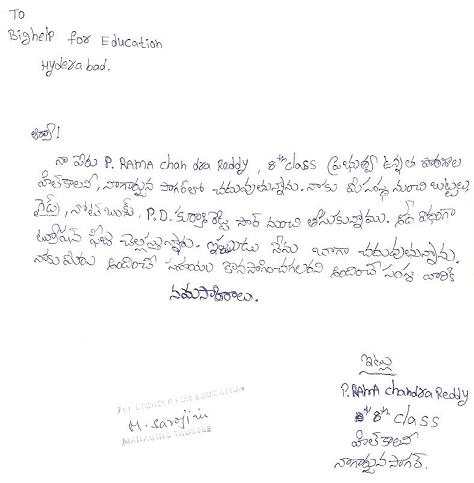 To
Bighelp for Education
Hyderabad.
ఆర్యా!
నా పేరు P. RAMA chandra Reddy, 8th class ప్రభుత్వ ఉన్నత పాఠశాల
హిల్‌కాలని, నాగార్జున సాగర్‌లో చదువుతున్నాను. నాకు మీ సంస్థ నుంచి బుట్టలు,
నోట్ బుక్స్, P.D. సార్ నుంచి తీసుకున్నాము.
ట్యూషన్ ఫీజు చెల్లిస్తున్నారు. ఇప్పుడు నేను బాగా చదువుతున్నాను.
నాకు మీరు అందించే సహాయం కొనసాగించగలరని అందించే సంస్థ వారికి
నమస్కారాలు.
ఇట్లు
P. RAMA chandra Reddy
8th class
హిల్ కాలని
నాగార్జున సాగర్.
For BIGHELP FOR EDUCATION
M. Sarojini
MANAGING TRUSTEE